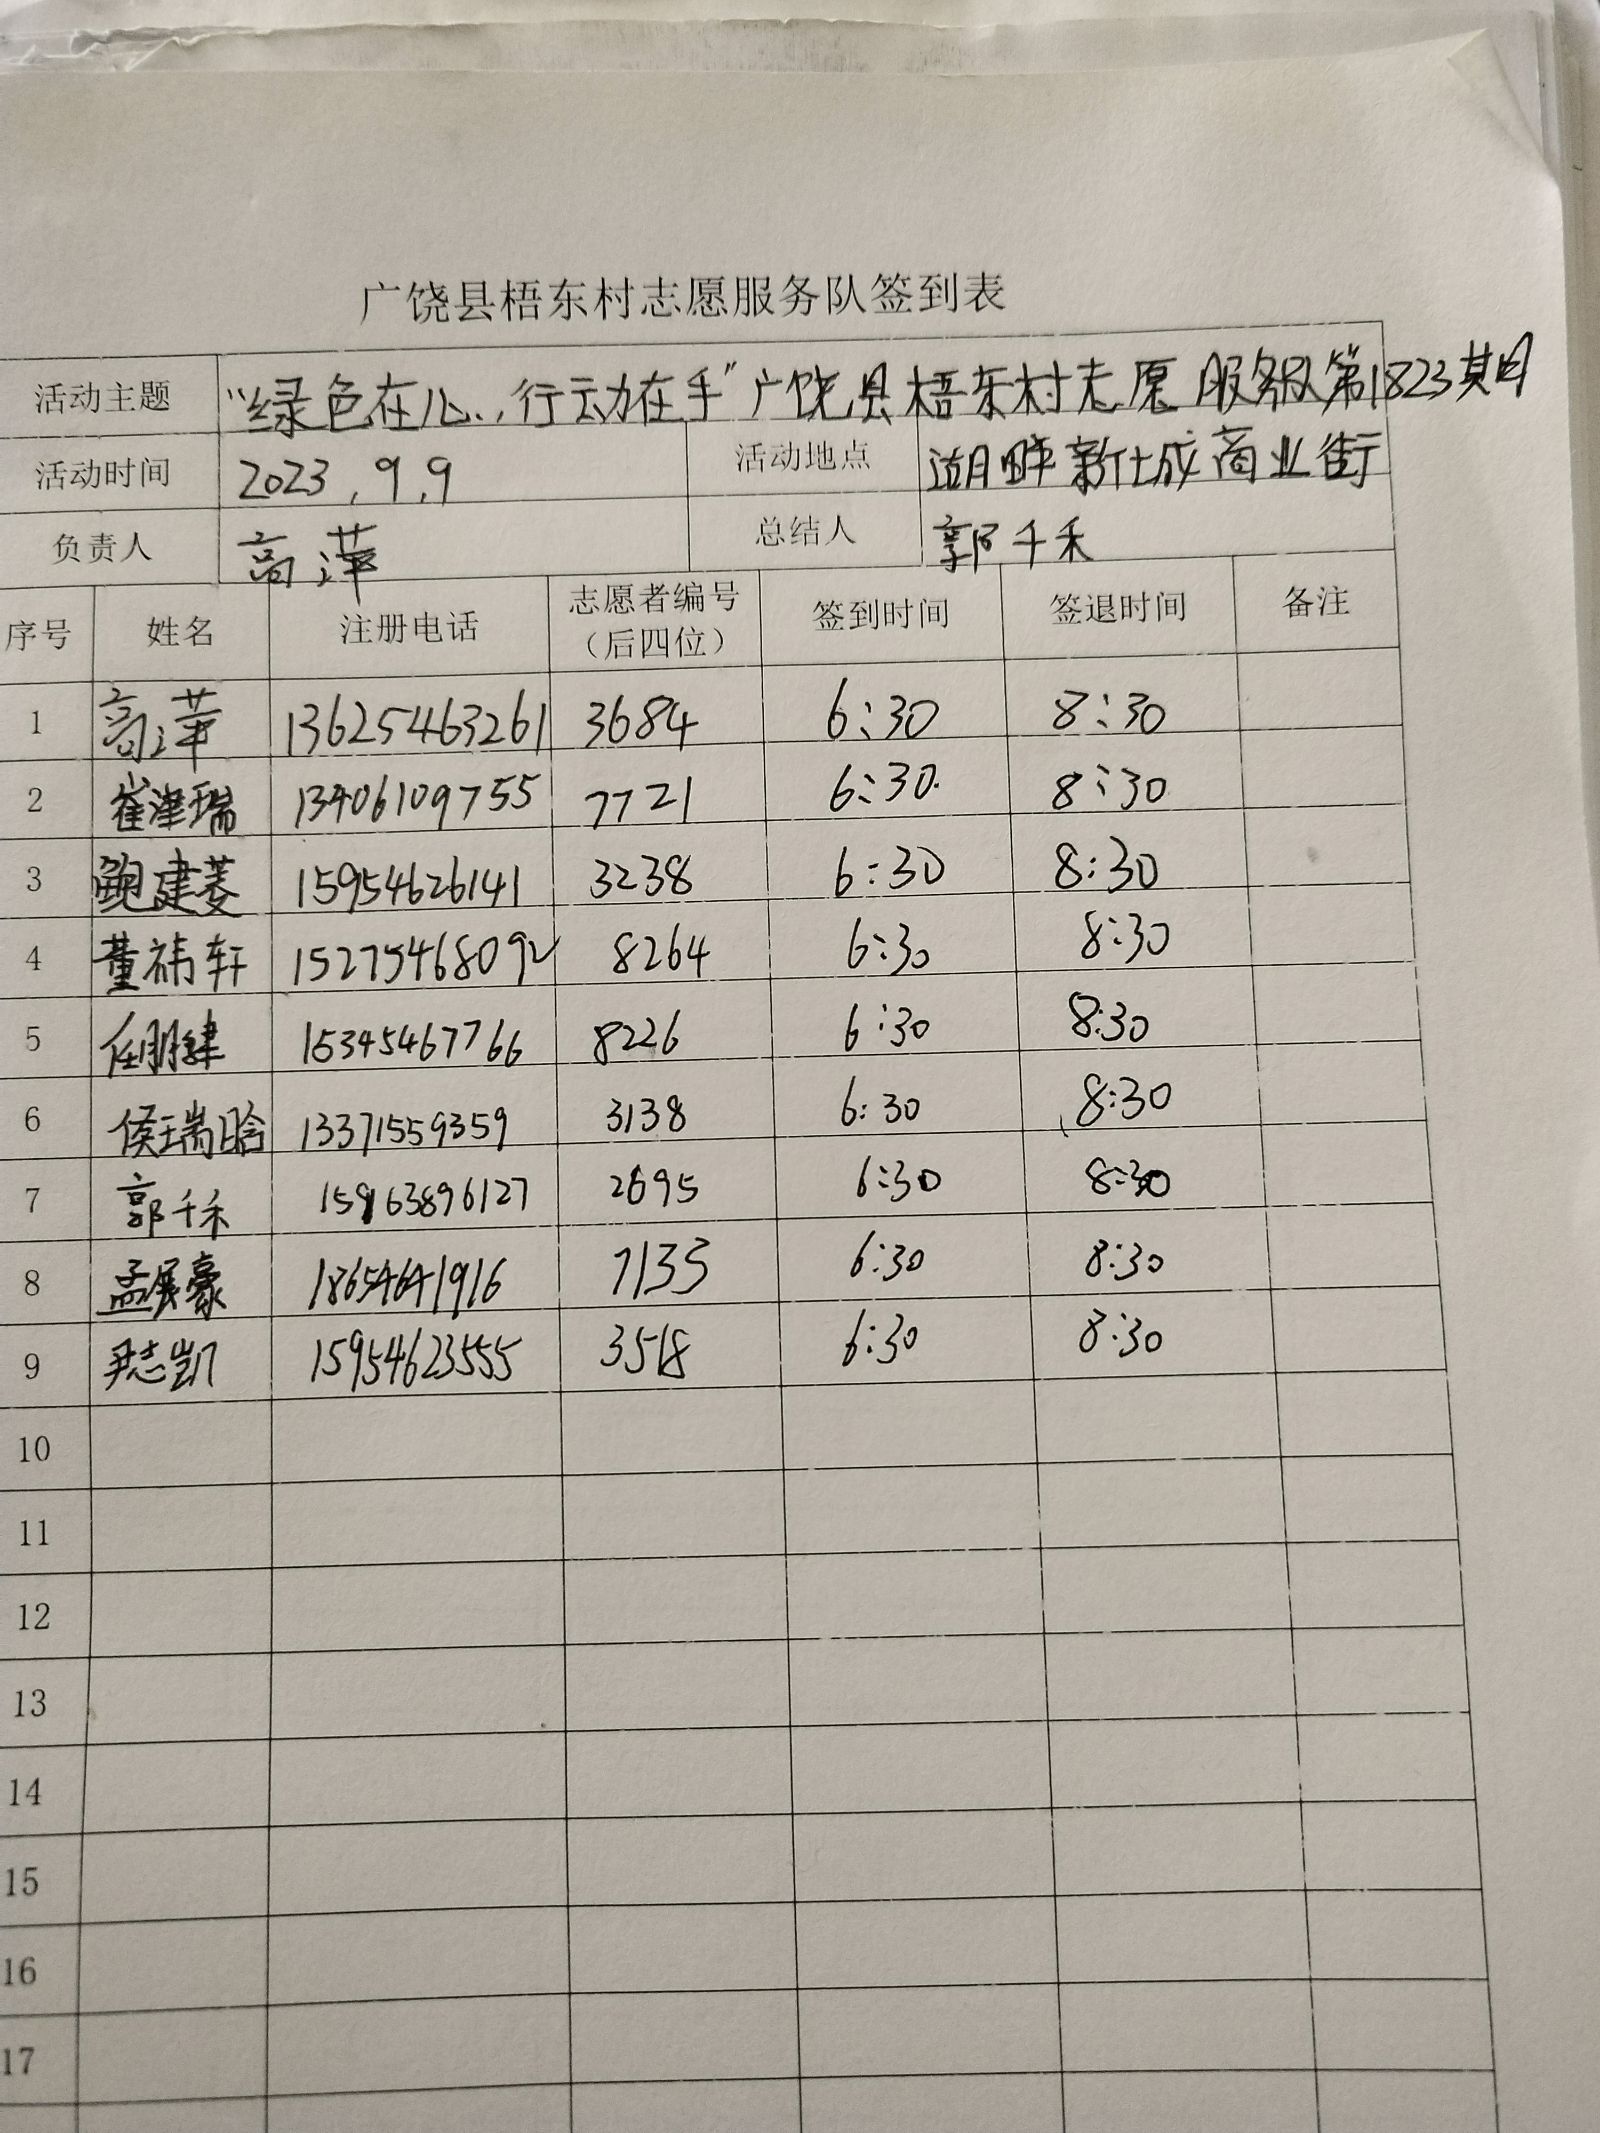 广饶县梧东村志愿服务队签到表
活动主题 “绿色在心，行动在手”广饶县梧东村志愿服务队第1823期
活动时间 2023.9.9 活动地点 湖畔新城商业街
负责人 高萍 总结人 郭千禾
序号 姓名 注册电话 志愿者编号（后四位） 签到时间 签退时间 备注
1 高萍 13625463261 3684 6:30 8:30
2 崔津瑞 13406109755 7721 6:30 8:30
3 鲍建菱 15954626141 3238 6:30 8:30
4 董祎轩 15275468092 8264 6:30 8:30
5 任鹏肄 15345467766 8226 6:30 8:30
6 侯瑞晗 13371559359 3138 6:30 8:30
7 郭千禾 15963896127 2695 6:30 8:30
8 孟展豪 18654641916 7135 6:30 8:30
9 尹志凯 15954623555 3518 6:30 8:30
10
11
12
13
14
15
16
17